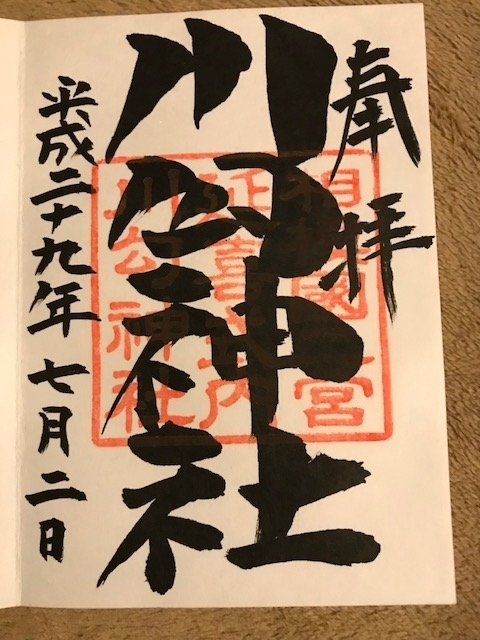 奉拝
川勾神社
平成二十九年七月二日
相模國二宮
延喜式内
川勾神社